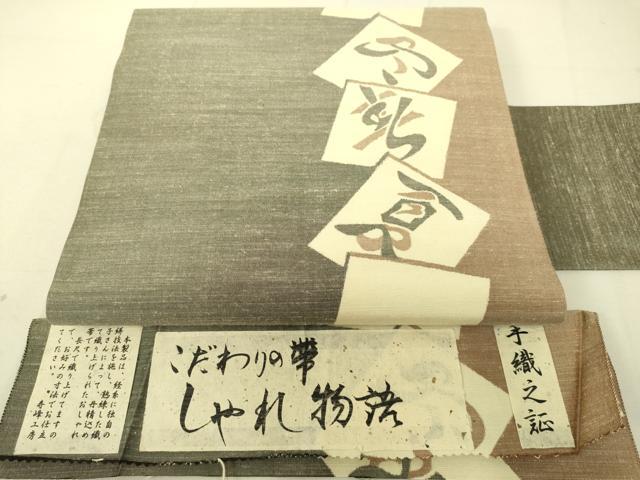 夏
こだわりの帯
しゃれ物語
手織之証
本製品は、経糸に独自の
絣技法を施し、熟練した織
子さんによって、丹精込め
て織り上げられたおしゃれ
帯です。
長尺で織り上げてますの
で、お好みの寸法でお仕立
てください。